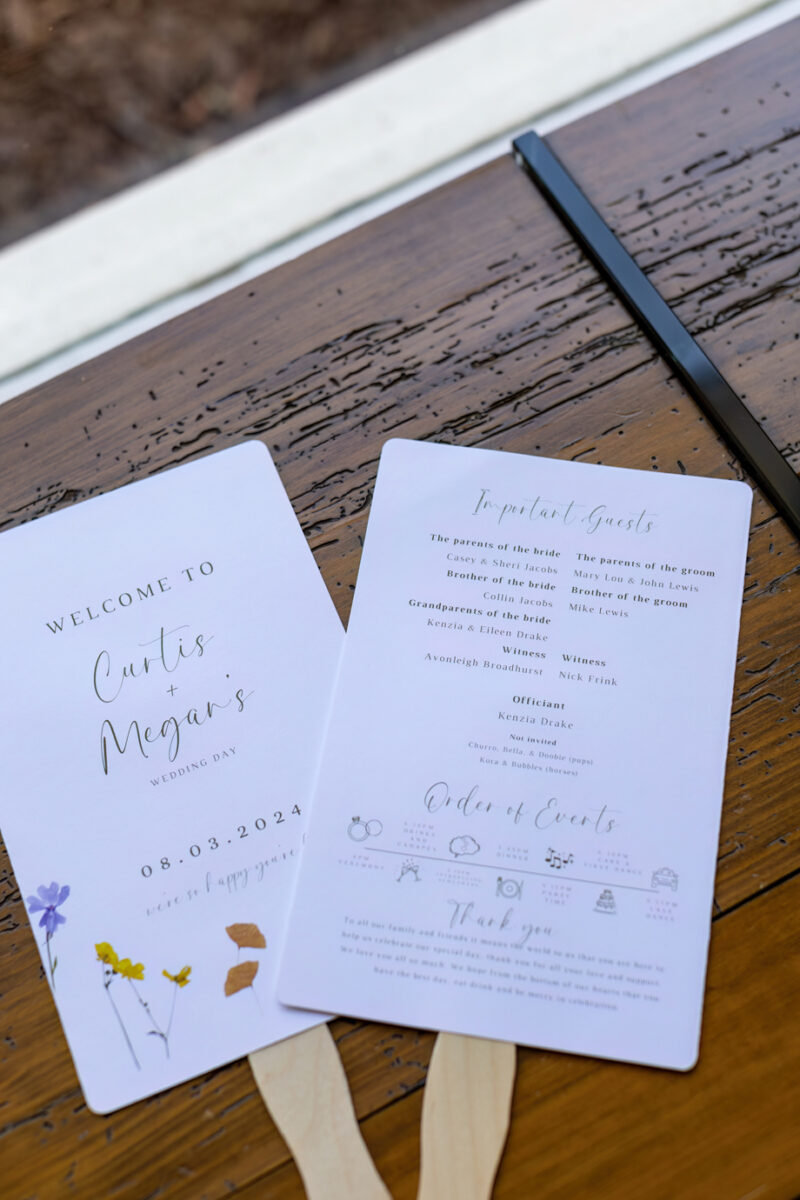 WELCOME TO
Curtis
+
Megan's
WEDDING DAY
08.03.2024
we're so happy you're
Important Guests
The parents of the bride
Casey & Sheri Jacobs
Brother of the bride
Collin Jacobs
Grandparents of the bride
Kenzia & Eileen Drake
The parents of the groom
Mary Lou & John Lewis
Brother of the groom
Mike Lewis
Witness
Avonleigh Broadhurst
Witness
Nick Frink
Officiant
Kenzia Drake
Not invited
Churro, Bella, & Doobie (pups)
Kora & Bubbles (horses)
Order of Events
4PM
CEREMONY
DRINKS
AND
CANAPES
DINNER
PARTY
TIME
CAKE &
FIRST DANCE
LAST
DANCE
Thank you
To all our family and friends it means the world to us that you are here to
help us celebrate our special day, thank you for all your love and support.
We love you all so much. We hope from the bottom of our hearts that you
have the best day, eat drink and be merry in celebration.